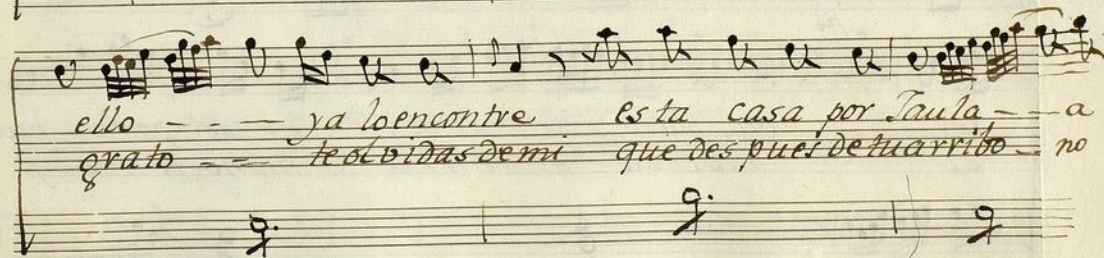 ello - - - ya lo encontre esta casa por Jaula - - a
grato - - te olvidas de mi que despues de tu arribo - no